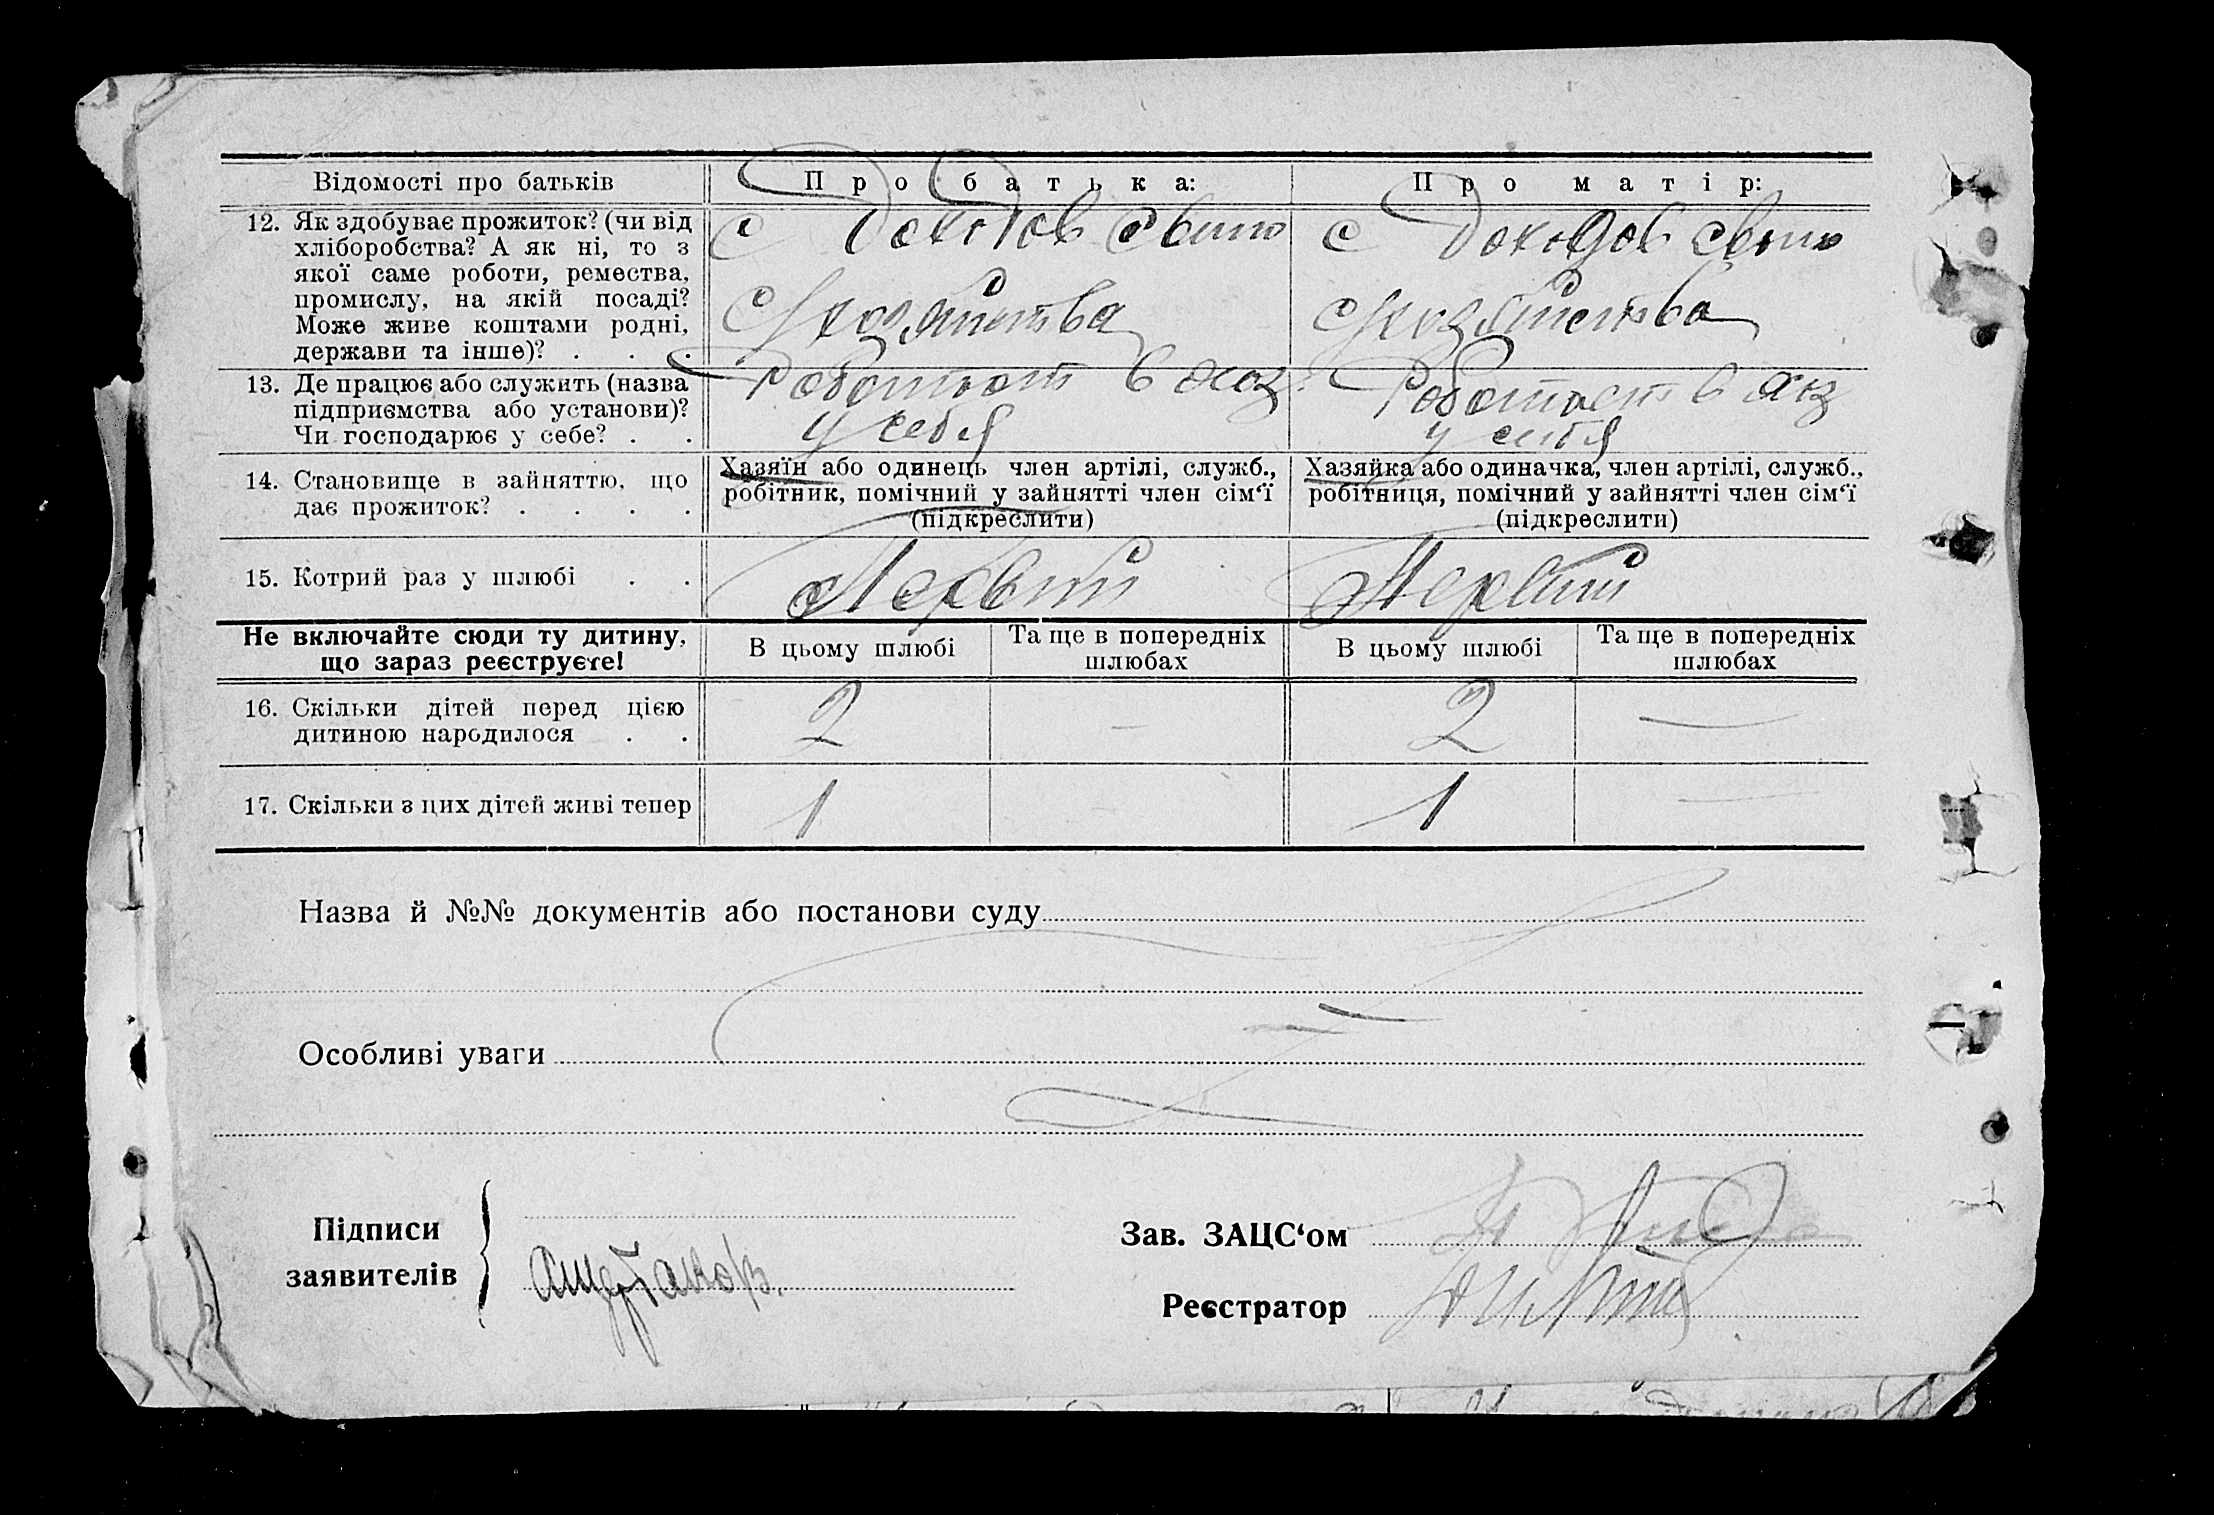 Відомості про батьків Про батька: Про матір:
12. Як здобуває прожиток? (чи від
хліборобства? А як ні, то з
якої саме роботи, ремества,
промислу, на якій посаді?
Може живе коштами родні,
держави та інше)? . . .
с Доходов свого
хозяйства
с Доходов свого
хозяйства
13. Де працює або служить (назва
підприємства або установи)?
Чи господарює у себе? . .
Работает в хоз
у себя
Работает в хоз
у себя
14. Становище в зайняттю, що
дає прожиток? . . . .
Хазяїн або одинець член артілі, служб.,
робітник, помічний у зайнятті член сім‘ї
(підкреслити)
Хазяйка або одиначка, член артілі, служб.,
робітниця, помічний у зайнятті член сім‘ї
(підкреслити)
15. Котрий раз у шлюбі . . Первый Первый
Не включайте сюди ту дитину,
що зараз реєструєте!
В цьому шлюбі
Та ще в попередніх
шлюбах
В цьому шлюбі
Та ще в попередніх
шлюбах
16. Скільки дітей перед цією
дитиною народилося . .
2 — 2 —
17. Скільки з цих дітей живі тепер 1 — 1 —
Назва й №№ документів або постанови суду
Особливі уваги
Підписи
заявителів
Зав. ЗАЦС‘ом
Реєстратор